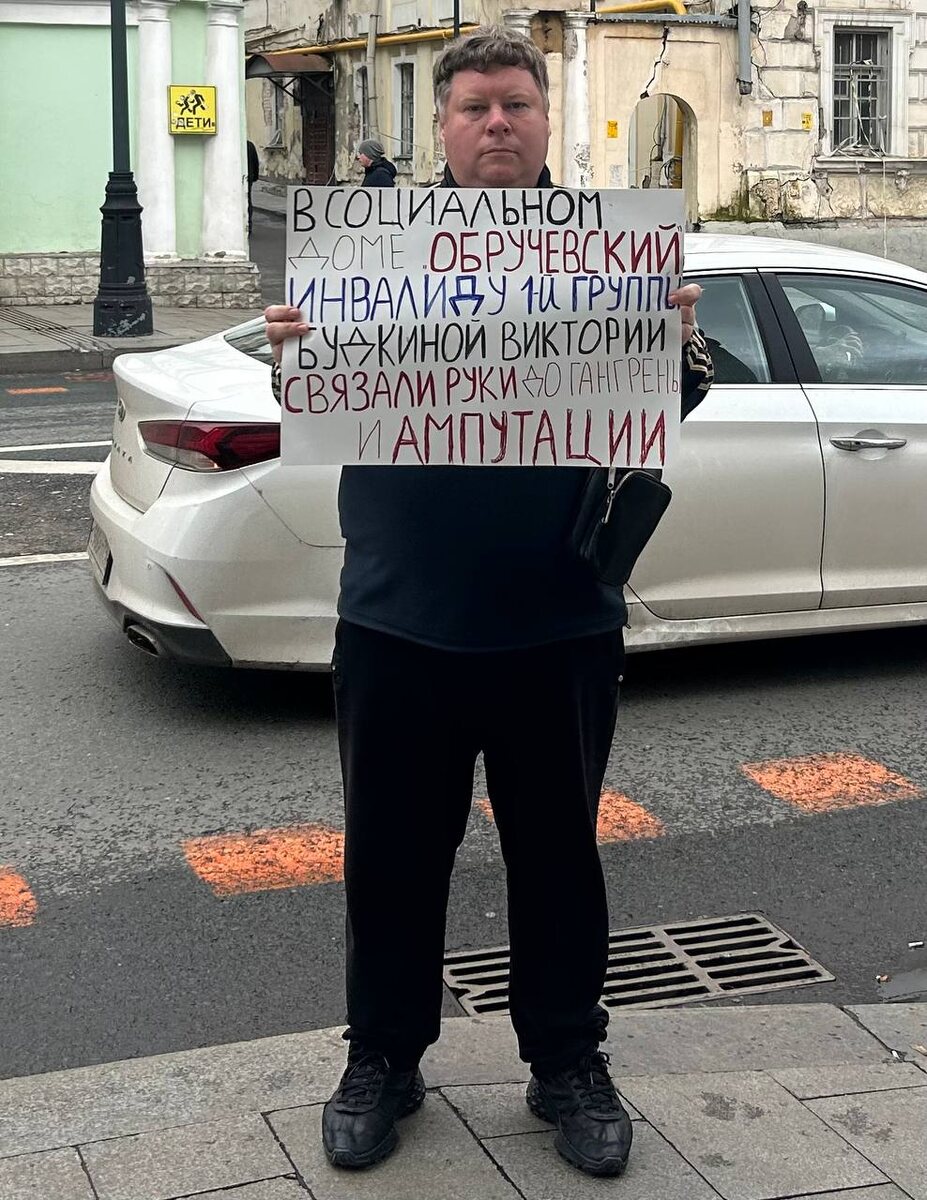 ДЕТИ
В СОЦИАЛЬНОМ
ДОМЕ "ОБРУЧЕВСКИЙ"
ИНВАЛИДУ 1й ГРУППЫ
БУДКИНОЙ ВИКТОРИИ
СВЯЗАЛИ РУКИ ДО ГАНГРЕНЫ
И АМПУТАЦИИ
SONATA